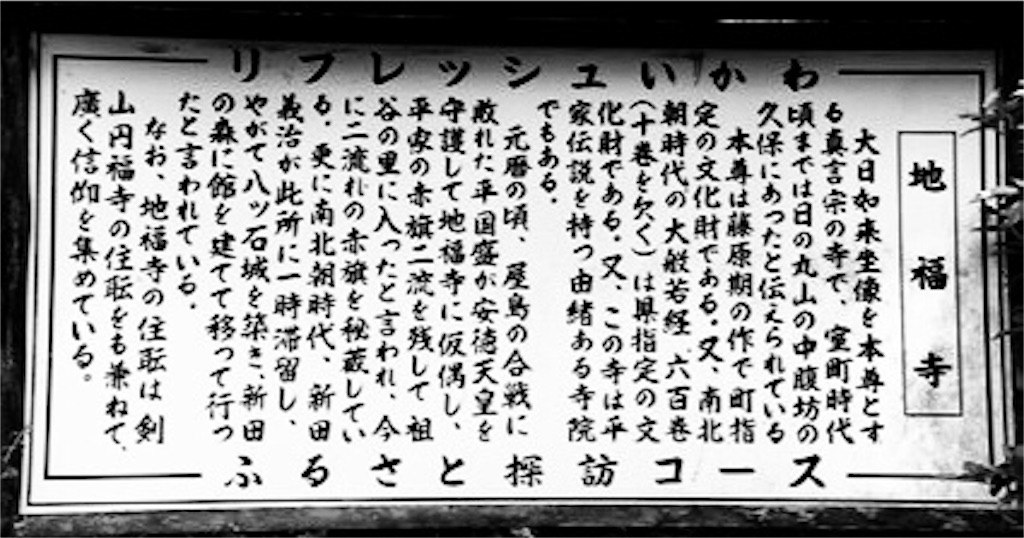 リフレッシュいかわ
地福寺
大日如来坐像を本尊とす
る真言宗の寺で、室町時代
頃までは日の丸山の中腹坊の
久保にあったと伝えられている
本尊は藤原期の作で町指
定の文化財である。又、南北
朝時代の大般若経 六百巻
(十巻を欠く)は県指定の文
化財である。又、この寺は平
家伝説を持つ由緒ある寺院
でもある。
元暦の頃、屋島の合戦に
敗れた平国盛が安徳天皇を
守護して地福寺に仮偶し、
平家の赤旗二流を残して 祖
谷の里に入ったと言われ、今
に二流れの赤旗を秘蔵してい
る。更に南北朝時代、新田
義治が此所に一時滞留し、
やがて八ッ石城を築き、新田
の森に館を建てて移って行っ
たと言われている。
なお、地福寺の住耺は 剣
山円福寺の住耺をも兼ねて、
廣く信仰を集めている。
ふるさと探訪コース